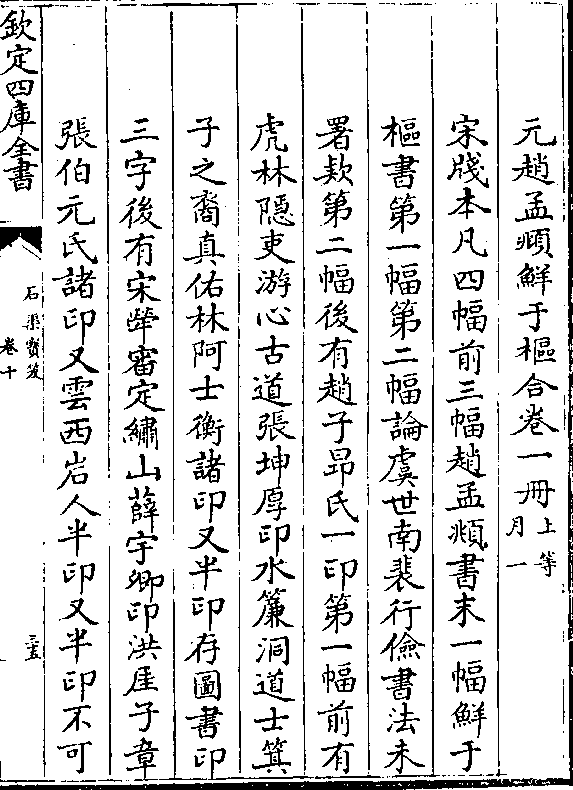 元趙孟頫鮮于樞合卷一冊上等
月一
宋牋本凡四幅前三幅趙孟頫書末一幅鮮于
樞書第一幅第二幅論虞世南裴行儉書法未
署款第二幅後有趙子昂氏一印第一幅前有
虎林隱吏游心古道張坤厚印水簾洞道士箕
子之裔真佑林阿士衡諸印又半印存圖書印
三字後有宋犖審定繡山薛宇卿印洪厓子章
張伯元氏諸印又雲西岩人半印又半印不可
欽定四庫全書
石渠寶笈
卷十
三五